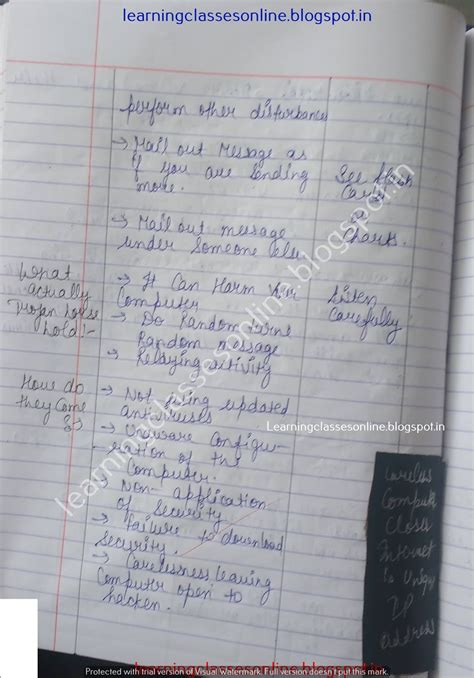 learningclassesonline.blogspot.in
perform other disturbance
→ Mail out Message as
if you are sending
more.
→ Mail out message
under Someone else.
See
Charts.
What
actually
Trojan horse
hold:-
→ It Can Harm
Computer
→ Do Random turns
Random message
→ Relaying activity
Listen
Carefully
How do
they Come
→ Not using updated
antiviruses
→ Unaware Configu-
ration of the
Computer.
→ Non-application
of Security
→ failure to download
Security.
→ Carelessness leaving
Computer open to
Learningclassesonline.blogspot.in
learningclassesonline.blogspot.in
Careless
Computer
Close
Internet
is
IP
address
learningclassesonline.blogspot.in
Protected with trial version of Visual Watermark. Full version doesn't put this mark.